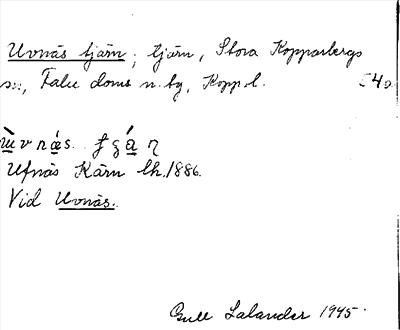 Uvnäs tjärn; tjärn, Stora Kopparbergs
sn, Falu doms n. bg, Kopp. l. 54
Ufnäs Kärn lk. 1886.
Vid Uvnäs.
Gull Lalander 1945.